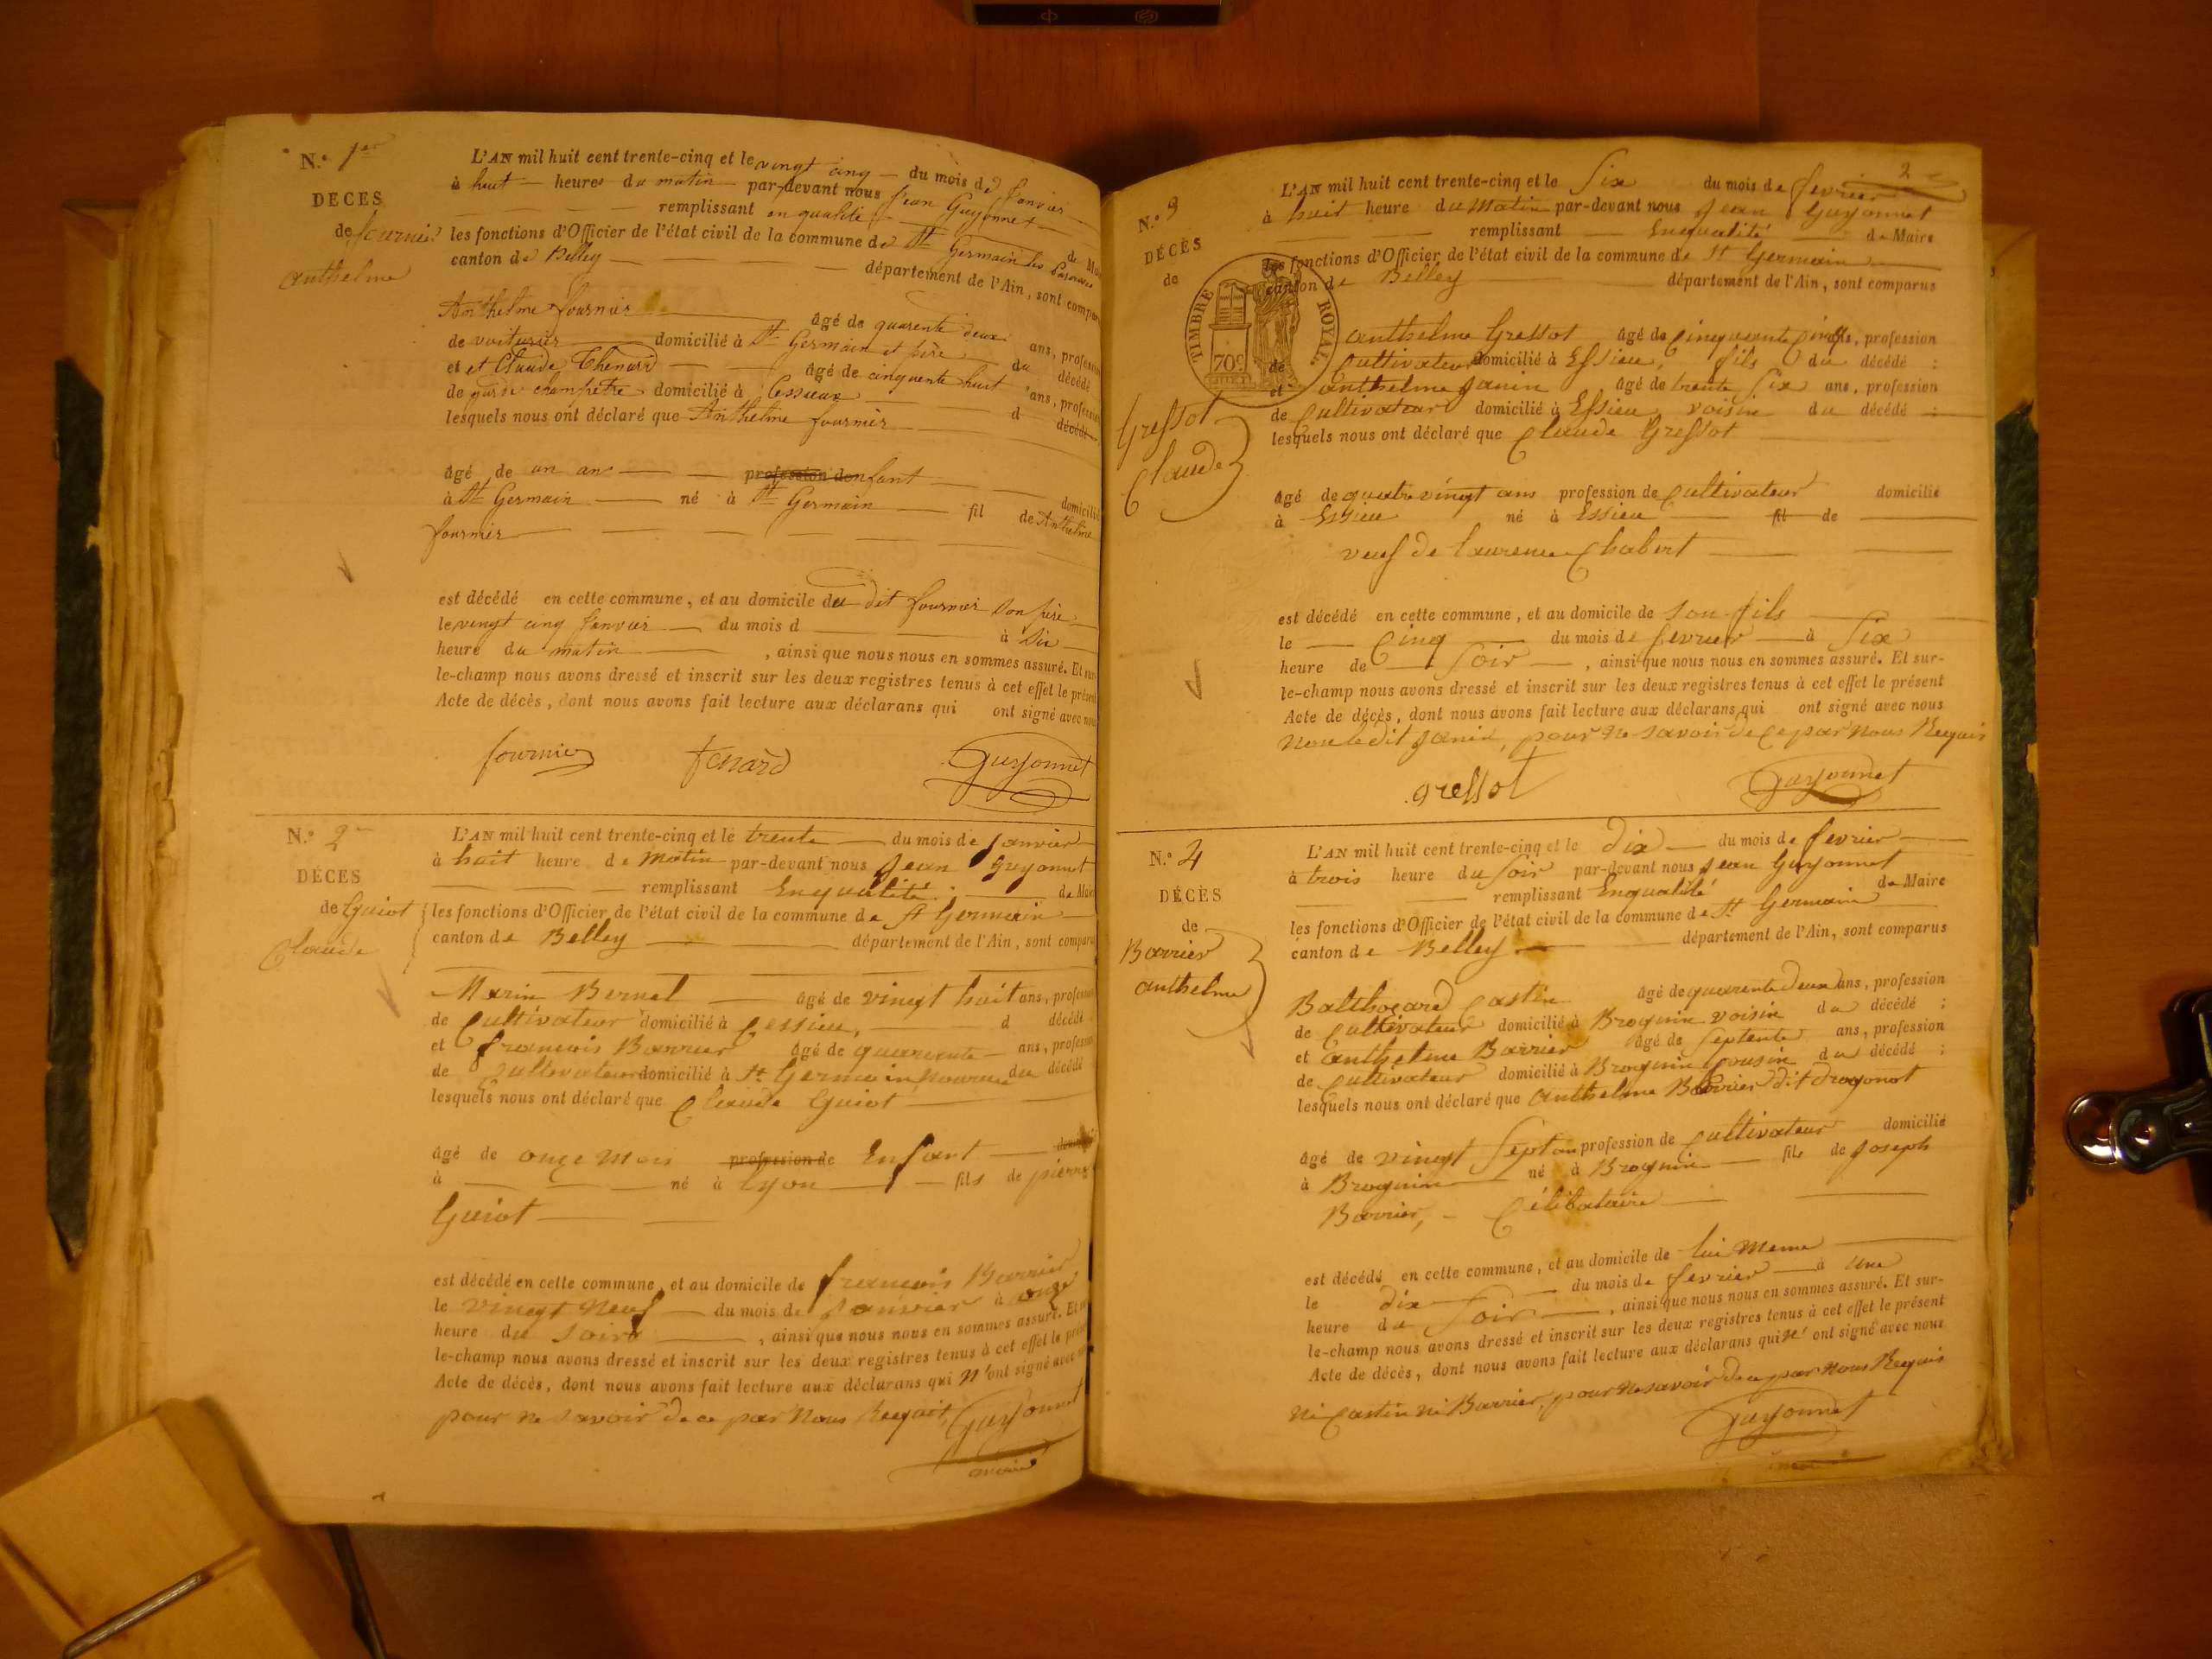 N.º 1er
DÉCÈS
de fournier
anthelme
L'AN mil huit cent trente-cinq et le vingt cinq du mois de Janvier
à huit heures du matin par-devant nous Jean Guyonnet
remplissant en qualité de Ma
les fonctions d'Officier de l'état civil de la commune de St Germain les
canton de Belley département de l'Ain, sont compar
Anthelme fournier âgé de quarente deux ans, profes
de voiturier domicilié à St Germain et père du décédé
et et Claude Thenard âgé de cinquente huit ans, profes
de garde champêtre domicilié à Cessieux d décédé
lesquels nous ont déclaré que Anthelme fournier
âgé de un an profession d enfant domicilié
à St Germain né à St Germain fil de Anthelme
fournier
est décédé en cette commune, et au domicile du dit fournier son père
le vingt cinq Janvier du mois d à Six
heure du matin , ainsi que nous nous en sommes assuré. Et sur
le-champ nous avons dressé et inscrit sur les deux registres tenus à cet effet le présent
Acte de décès, dont nous avons fait lecture aux déclarans qui ont signé avec nous
fournier fenard Guyonnet
N.º 2
DÉCÈS
de Guiot
Claude
L'AN mil huit cent trente-cinq et le trente du mois de Janvier
à huit heure de Matin par-devant nous Jean Guyonnet
remplissant Enqualité de Mair
les fonctions d'Officier de l'état civil de la commune de St Germain
canton de Belley département de l'Ain, sont compar
Marin Bernel âgé de vingt huit ans, profes
de Cultivateur domicilié à Cessieu, d décédé
et francois Barrier âgé de quarente ans, profes
de Cultivateur domicilié à St Germain du décédé
lesquels nous ont déclaré que Claude Guiot
âgé de onze Mois profession de Enfant
à né à Lyon fils de pierre
Guiot
est décédé en cette commune, et au domicile de francois Barrier
le vingt Neuf du mois de Janvier à onze
heure du Soire , ainsi que nous nous en sommes assuré. Et
le-champ nous avons dressé et inscrit sur les deux registres tenus à cet effet le présent
Acte de décès, dont nous avons fait lecture aux déclarans qui N'ont signé avec
pour ne Savoir de ce par Nous Requit, Guyonnet
2
N.º 3
DÉCÈS
de
Gressot
Claude
TIMBRE ROYAL
70c
L'AN mil huit cent trente-cinq et le Six du mois de fevrier
à huit heure du Matin par-devant nous Jean Guyonnet
remplissant Enqualité de Maire
les fonctions d'Officier de l'état civil de la commune de St Germain
canton de Belley département de l'Ain, sont comparus
anthelme Gressot âgé de Cinquante Cinq ans, profession
de Cultivateur domicilié à Essieu, fils du décédé ;
et anthelme Janin âgé de trente Six ans, profession
de Cultivateur domicilié à Essieu voisin du décédé ;
lesquels nous ont déclaré que Claude Gressot
âgé de quatre vingt ans profession de Cultivateur domicilié
à Essieu né à Essieu fil de
veuf de laurence Chabert
est décédé en cette commune, et au domicile de Son fils
le Cinq du mois de fevrier à Six
heure de Soir , ainsi que nous nous en sommes assuré. Et sur-
le-champ nous avons dressé et inscrit sur les deux registres tenus à cet effet le présent
Acte de décès, dont nous avons fait lecture aux déclarans qui ont signé avec nous
Non ledit Janin, pour ne Savoir de ce par Nous Requis
gressot Guyonnet
N.º 4
DÉCÈS
de
Barrier
anthelme
L'AN mil huit cent trente-cinq et le dix du mois de fevrier
à trois heure du Soir par-devant nous Jean Guyonnet
remplissant Enqualité de Maire
les fonctions d'Officier de l'état civil de la commune de St Germain
canton de Belley département de l'Ain, sont comparus
Balthazard Castin âgé de quarente deux ans, profession
de Cultivateur domicilié à Brognin voisin du décédé ;
et anthelme Barrier âgé de Septente ans, profession
de Cultivateur domicilié à Brognin Cousin du décédé ;
lesquels nous ont déclaré que anthelme Barrier dit dragonot
âgé de vingt Sept an profession de Cultivateur domicilié
à Brognin né à Brognin fils de Joseph
Barrier, Célibataire
est décédé en cette commune, et au domicile de lui meme
le dix du mois de fevrier à une
heure du Soir , ainsi que nous nous en sommes assuré. Et sur-
le-champ nous avons dressé et inscrit sur les deux registres tenus à cet effet le présent
Acte de décès, dont nous avons fait lecture aux déclarans qui N' ont signé avec nous
Ni Castin Ni Barrier, pour Ne savoir de ce par Nous Requis
Guyonnet